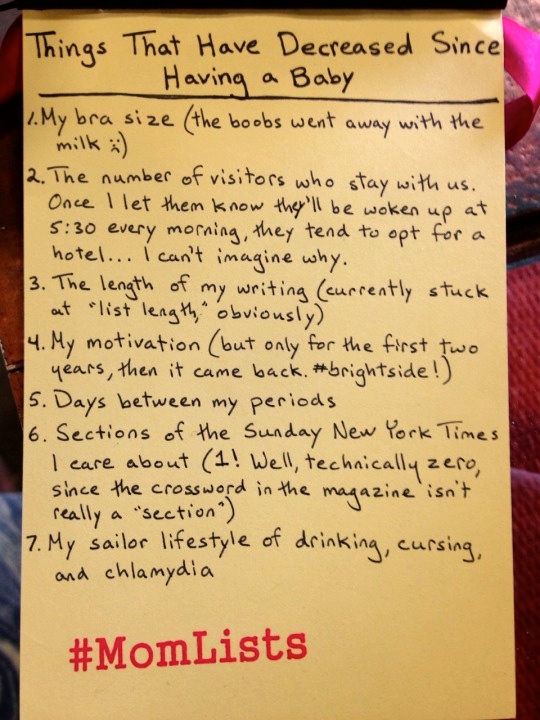 Things That Have Decreased Since
Having a Baby
1. My bra size (the boobs went away with the
milk :()
2. The number of visitors who stay with us.
Once I let them know they'll be woken up at
5:30 every morning, they tend to opt for a
hotel... I can't imagine why.
3. The length of my writing (currently stuck
at "list length," obviously)
4. My motivation (but only for the first two
years, then it came back. #brightside!)
5. Days between my periods
6. Sections of the Sunday New York Times
I care about (1! Well, technically zero,
since the crossword in the magazine isn't
really a "section")
7. My sailor lifestyle of drinking, cursing,
and chlamydia
#MomLists